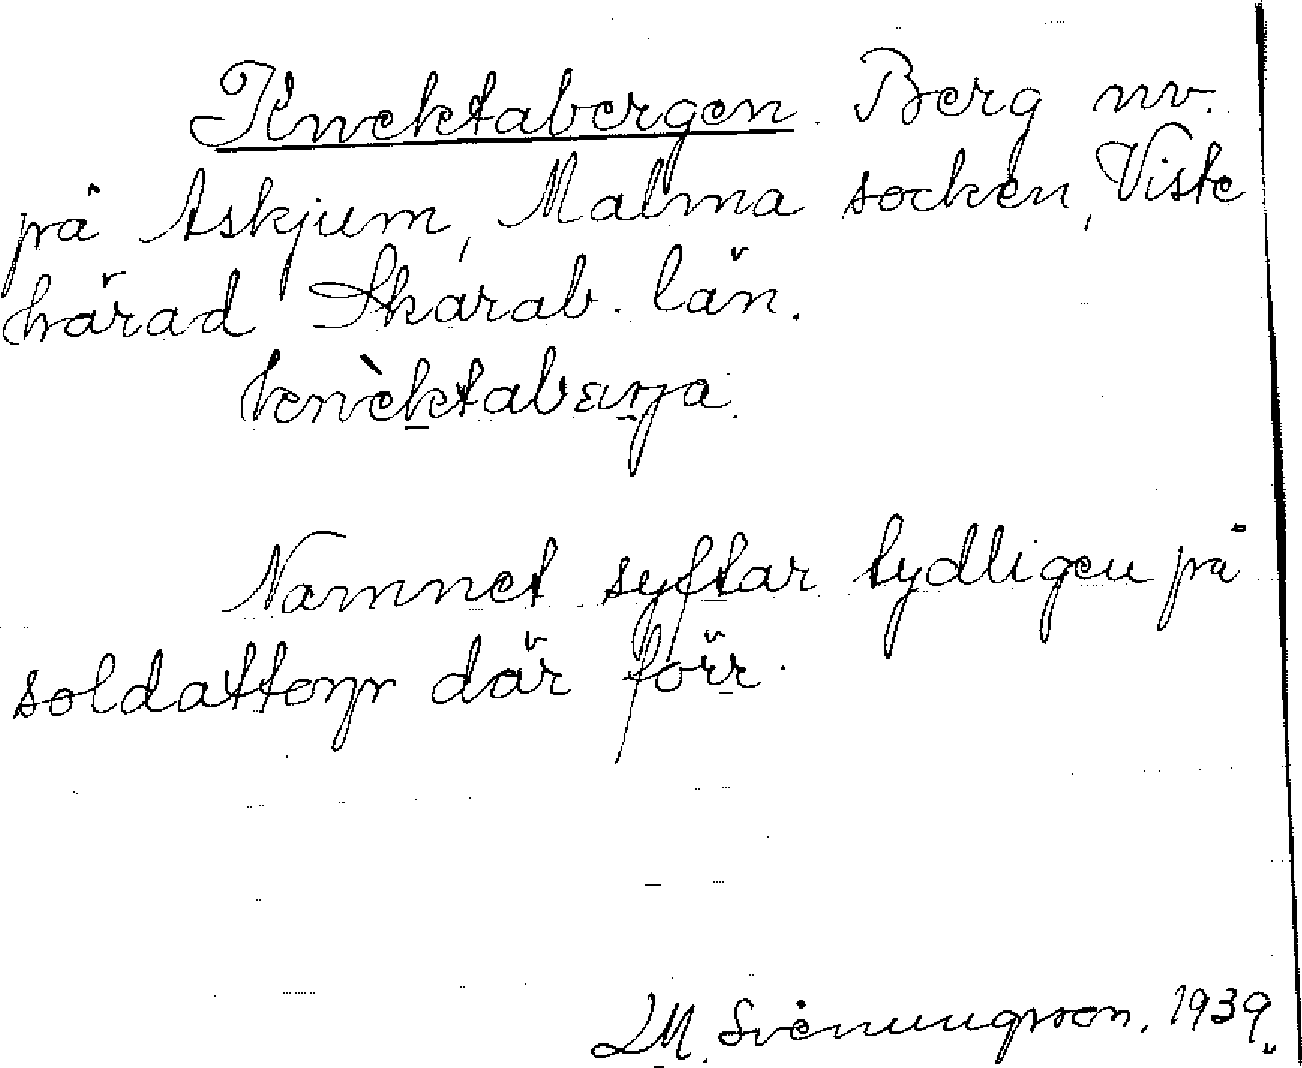 Knektabergen. Berg nv.
på Askjum, Malma socken, Viste
härad Skarab. län.
knèktabærja.
Namnet syftar tydligen på
soldattorp där förr.
LM. Svenungsson. 1939.